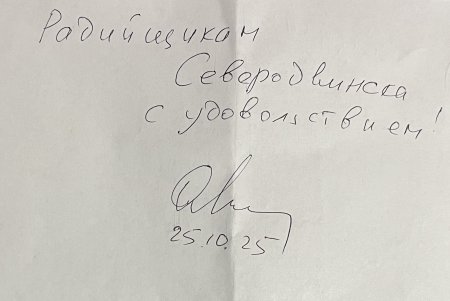 Радийщикам
Северодвинска
с удовольствием!
25.10.25